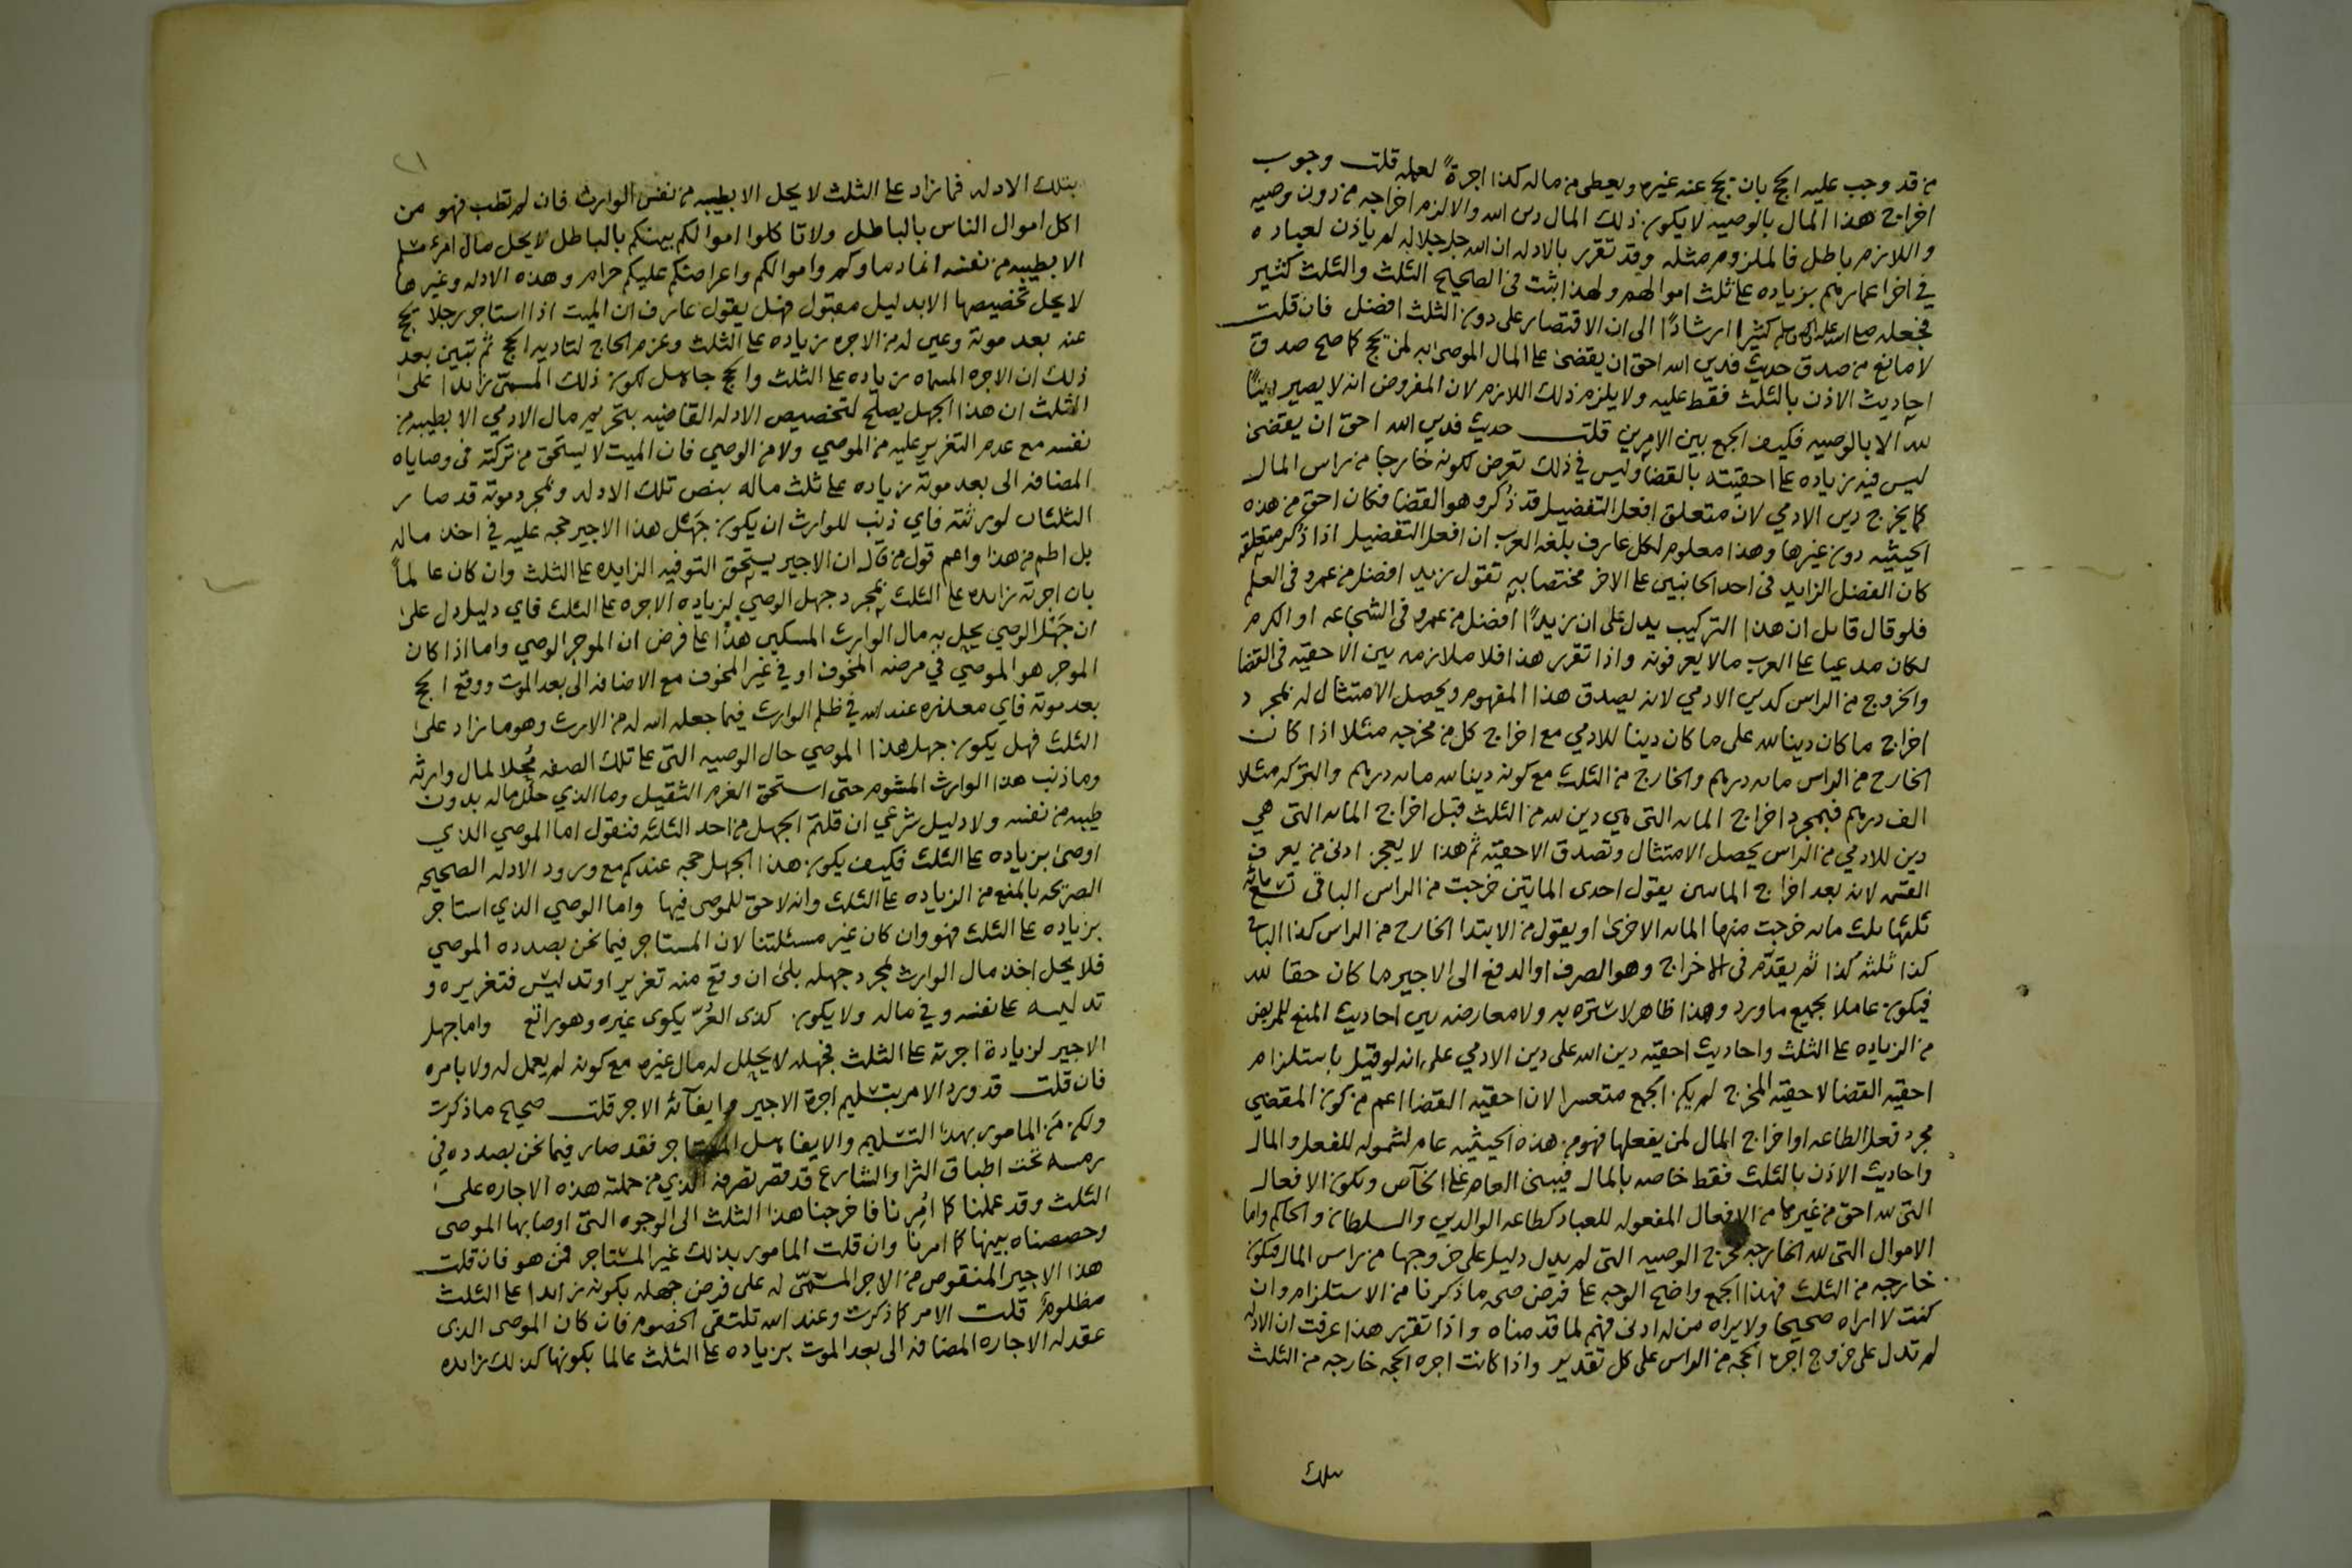 من قد وجب عليه الحج بان يحج عنه غيره ويعطى من ماله كذا اجرةً لعمله قلت وجوب
اخراج هذا المال بالوصيه لا يكون ذلك المال دين الله والا لزم اخراجه من دون وصيه
واللازم باطل فالملزوم مثله وقد تقرر بالادله ان الله جل جلاله لم ياذن لعباده
في اخر اعمارهم بزياده على ثلث اموالهم ولهذا ثبت في الصحيح الثلث والثلث كثير
فجعله صلى الله عليه واله وسلم كثيرا ارشادًا الى ان الاقتصار على دون الثلث افضل فان قلت
لا مانع من صدق حديث فدين الله احق ان يقضى على المال الموصى به لمن يحج كما صح صدق
احاديث الاذن بالثلث فقط عليه ولا يلزم ذلك اللازم لان المفروض انه لا يصير دينًا
لله الا بالوصيه فكيف الجمع بين الامرين قلت حديث فدين الله احق ان يقضى
ليس فيه زياده على احقيته بالقضا وليس في ذلك تعرض لكونه خارجا من راس المال
كما يخرج دين الادمي لان متعلق افعل التفضيل قد ذُكر وهو القضا فكان احق من هذه
الحيثيه دون غيرها وهذا معلوم لكل عارف بلغه العرب ان افعل التفضيل اذا ذُكر متعلقه
كان الفضل الزايد في احد الجانبين على الاخر مختصا به تقول زيد افضل من عمرو في العلم
فلو قال قايل ان هذا التركيب يدل على ان زيدًا افضل من عمرو في الشجاعه او الكرم
لكان مدعيا على العرب مالا يعرفونه واذا تقرر هذا فلا ملازمه بين الاحقيه في القضا
والخروج من الراس كدين الادمي لانه يصدق هذا المفهوم ويحصل الامتثال له بمجرد
اخراج ما كان دينا لله على ما كان دينا للادمي مع اخراج كل من مخرجه مثلا اذا كان
الخارج من الراس مايه درهم والخارج من الثلث مع كونه دينا لله مايه درهم والتركه مثلا
الف درهم فبمجرد اخراج المايه التى هي دين لله من الثلث قبل اخراج المايه التى هي
دين للادمي من الراس يحصل الامتثال وتصدق الاحقيه ثم هذا لا يعجز ادنى من يعرف
القسمه لانه بعد اخراج المايتين يقول احدى المايتين خرجت من الراس الباقي تسع مائه
ثلثها ثلث مايه خرجت منها المايه الاخرى او يقول من الابتدا الخارج من الراس كذا الباقي
كذا ثلثه كذا ثم يقدّم في الاخراج وهو الصرف او الدفع الى الاجير ما كان حقا لله
فيكون عاملا بجميع ما ورد وهذا ظاهر لا ستره به ولا معارضه بين احاديث المنع للمريض
من الزياده على الثلث واحاديث احقيه دين الله على دين الادمي على انه لو قيل باستلزام
احقيه القضا لاحقيه المخرج لم يكن الجمع متعسرا لان احقيه القضا اعم من كون المقضي
مجرد فعل الطاعه او اخراج المال لمن يفعلها فهو من هذه الحيثيه عام لشموله للفعل والمال
واحاديث الاذن بالثلث فقط خاصه بالمال فيبنى العام على الخآص وتكون الافعال
التى لله احق من غيرها من الافعال المفعوله للعباد كطاعه الوالدين والسلطان والحاكم واما
الاموال التى لله الخارجه مخرج الوصيه التى لم يدل دليل على خروجها من راس المال فتكون
خارجه من الثلث فهذا الجمع واضح الوجه على فرض صحه ما ذكرنا من الاستلزام وان
كنت لا اراه صحيحا ولا يراه من له ادنى فهم لما قدمناه واذا تقرر هذا عرفت ان الادله
لم تدل على خروج اجرة الحجه من الراس على كل تقدير واذا كانت اجره الحجه خارجه من الثلث
بتلك
٢١
بتلك الادله فما زاد على الثلث لا يحل الا بطيبه من نفس الوارث فان لم تطب فهو من
اكل اموال الناس بالباطل ولا تاكلوا اموالكم بينكم بالباطل لا يحل مال امرء مسلم
الا بطيبه من نفسه انما دماوكم واموالكم واعراضكم عليكم حرام وهذه الادله وغيرها
لا يحل تخصيصها الا بدليل مقبول فهل يقول عارف ان الميت اذا استاجر رجلا يحج
عنه بعد موته وعين له من الاجره زياده على الثلث وعزم الحاج لتاديه الحج ثم تبين بعد
ذلك ان الاجره المسماه زياده على الثلث والحج جاهل لكون ذلك المسمى زايدا على
الثلث ان هذا الجهل يصلح لتخصيص الادله القاضيه بتحريم مال الادمي الا بطيبه من
نفسه مع عدم التغرير عليه من الموصي ولا من الوصي فان الميت لا يستحق من تركته في وصاياه
المضافه الى بعد موته زياده على ثلث ماله بنص تلك الادله وبمجرد موته قد صار
الثلثان لورثته فاي ذنب للوارث ان يكون جَهْل هذا الاجير حجه عليه في اخذ ماله
بل اطم من هذا واعم قول من قال ان الاجير يستحق التوفيه الزايده على الثلث وان كان عالمًا
بان اجرته زايده على الثلث بمجرد جهل الوصي لزياده الاجره على الثلث فاي دليل دل على
ان جَهْل الوصي يحل به مال الوارث المسكين هذا على فرض ان الموجر الوصي واما اذا كان
الموجر هو الموصي في مرضه المخوف او في غير المخوف مع الاضافه الى بعد الموت ووقع الحج
بعد موته فاي معذره عند الله في ظلم الوارث فيما جعله الله له من الارث وهو ما زاد على
الثلث فهل يكون جهل هذا الموصي حال الوصيه التى على تلك الصفه مُحِلا لمال وارثه
وما ذنب هذا الوارث المشوم حتى استحق الغرم الثقيل وما الذي حلل ماله بدون
طيبه من نفسه ولا دليل شرعي ان قلتم الجهل من احد الثلثه فنقول اما الموصي الذي
اوصى بزياده على الثلث فكيف يكون هذا الجهل حجه عندكم مع ورود الادله الصحيحه
الصريحه بالمنع من الزياده على الثلث وانه لا حق للموصى فيها واما الوصي الذي استاجر
بزياده على الثلث فهو وان كان غير مسئلتنا لان المستاجر فيما نحن بصدده الموصي
فلا يحل اخذ مال الوارث بمجرد جهله بلى ان وقع منه تغرير او تدليس فتغريره و
تدليسه على نفسه وفي ماله ولا يكون كذى العُرّ يكوى غيره وهو راتع واما جهل
الاجير لزيادة اجرته على الثلث فجهله لا يحلل له مال غيره مع كونه لم يعمل له ولا بامره
فان قلت قد ورد الامر بتسليم اجرة الاجير وايفآئه الاجر قلت صحيح ما ذكرت
ولكن مَن المامور بهذا التسليم والايفا هل المستاجر فقد صار فيما نحن بصدده في
رمسه تحت اطباق الثرا والشارع قد قصر تصرفه الذي من جملته هذه الاجاره على
الثلث وقد عملنا كما اُمِرنا فاخرجنا هذا الثلث الى الوجوه التى اوصا بها الموصى
وحصصناه بينها كما امرنا وان قلت المامور بذلك غير المستاجر فمن هو فان قلت
هذا الاجير المنقوص من الاجر المسمّى له على فرض جهله بكونه زايدا على الثلث
مظلومٌ قلت الامر كما ذكرت وعند الله تلتقي الخصوم فان كان الموصى الذى
عقد له الاجاره المضافه الى بعد الموت بزياده على الثلث عالما بكونها كذلك زايده